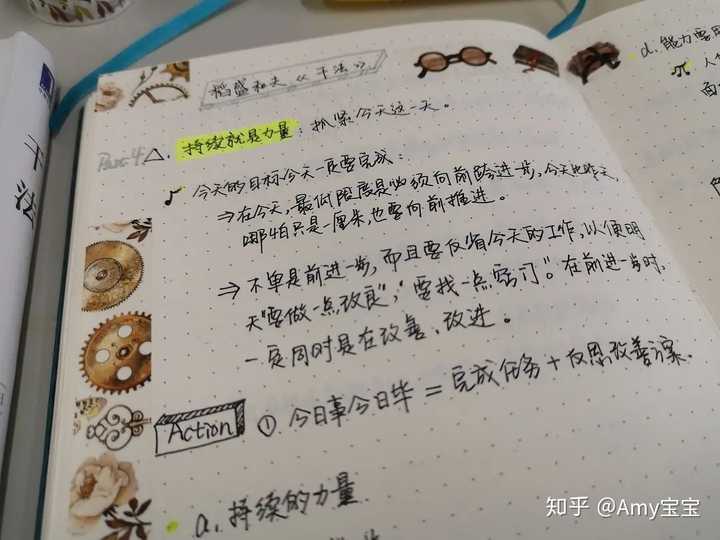 稻盛和夫《干法》
Part 4 △. 持续就是力量：抓紧今天这一天。
今天的目标今天一定要完成：
⇒在今天，最低限度是必须向前跨进一步，今天比昨天，
哪怕只是一厘米，也要向前推进。
⇒不单是前进一步，而且要反省今天的工作，以便明
天"要做一点改良"，"要找一点窍门"。在前进一步时，
一定同时是在改善、改进。
Action ① 今日事今日毕 = 完成任务 + 反思改善方案.
a. 持续的力量
d. 能力要用
人
干法
知乎 @Amy宝宝